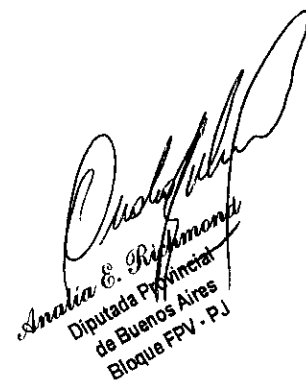 Analía E. Richmond
Diputada Provincial
de Buenos Aires
Bloque FPV - PJ